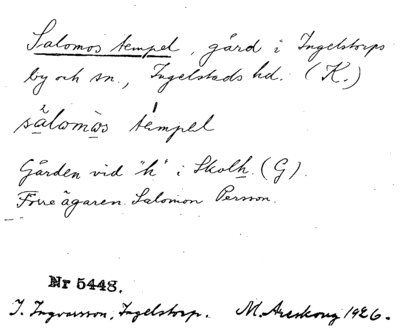 Salomos tempel, gård i Ingelstorps
by och sn., Ingelstads hd. (K.)
sàlomòs témpel
Gården vid "h" i Skolh. (G).
Förre ägaren Salomon Persson.
Nr 5448.
J. Ingvarsson, Ingelstorp. M. Areskoug 1926.